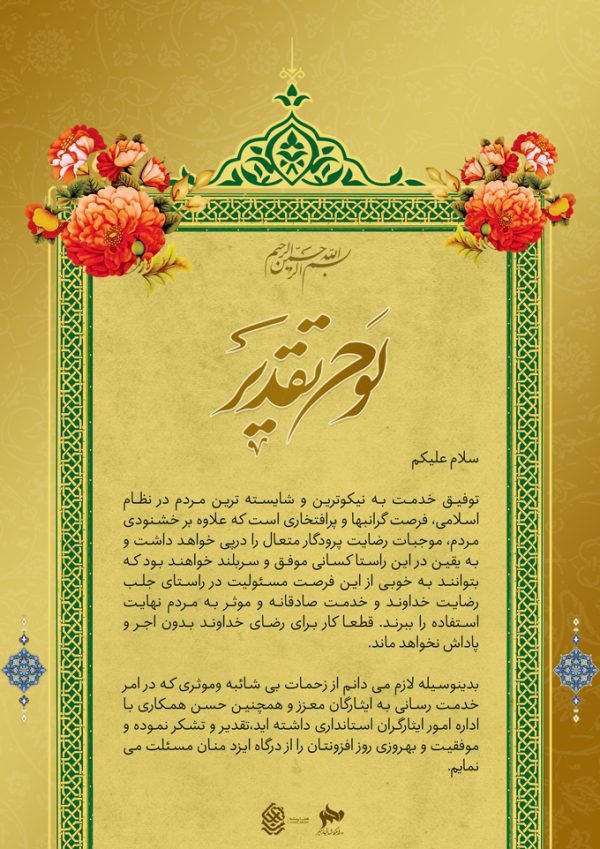 بسم الله الرحمن الرحیم
لوح تقدیر
سلام علیکم
توفیق خدمت به نیکوترین و شایسته ترین مردم در نظام
اسلامی، فرصت گرانبها و پرافتخاری است که علاوه بر خشنودی
مردم، موجبات رضایت پرودگار متعال را درپی خواهد داشت و
به یقین در این راستا کسانی موفق و سربلند خواهند بود که
بتوانند به خوبی از این فرصت مسئولیت در راستای جلب
رضایت خداوند و خدمت صادقانه و موثر به مردم نهایت
استفاده را ببرند. قطعا کار برای رضای خداوند بدون اجر و
پاداش نخواهد ماند.
بدینوسیله لازم می دانم از زحمات بی شائبه وموثری که در امر
خدمت رسانی به ایثارگان معزز و همچنین حسن همکاری با
اداره امور ایثارگران استانداری داشته اید،تقدیر و تشکر نموده و
موفقیت و بهروزی روز افزونتان را از درگاه ایزد منان مسئلت می
نمایم.